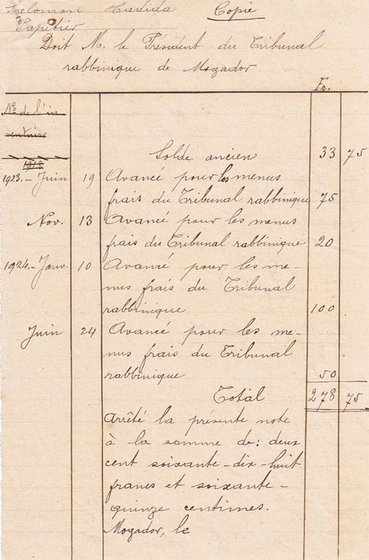 Salomon Hadida Copie
Papetier
Doit M. le Président du Tribunal
rabbinique de Mogador
Fr.
No de l'in
ventaire
Solde ancien 33 75
1923.- Juin 19 Avancé pour les menus
frais du Tribunal rabbinique 75
Nov. 13 Avancé pour les menus
frais du Tribunal rabbinique 20
1924.- Janv. 10 Avancé pour les me-
nus frais du Tribunal
rabbinique 100
Juin 24 Avancé pour les me-
nus frais du Tribunal
rabbinique 50
Total 278 75
Arrêté la présente note
à la somme de: deux
cent soixante-dix-huit
francs et soixante-
quinze centimes.
Mogador, le